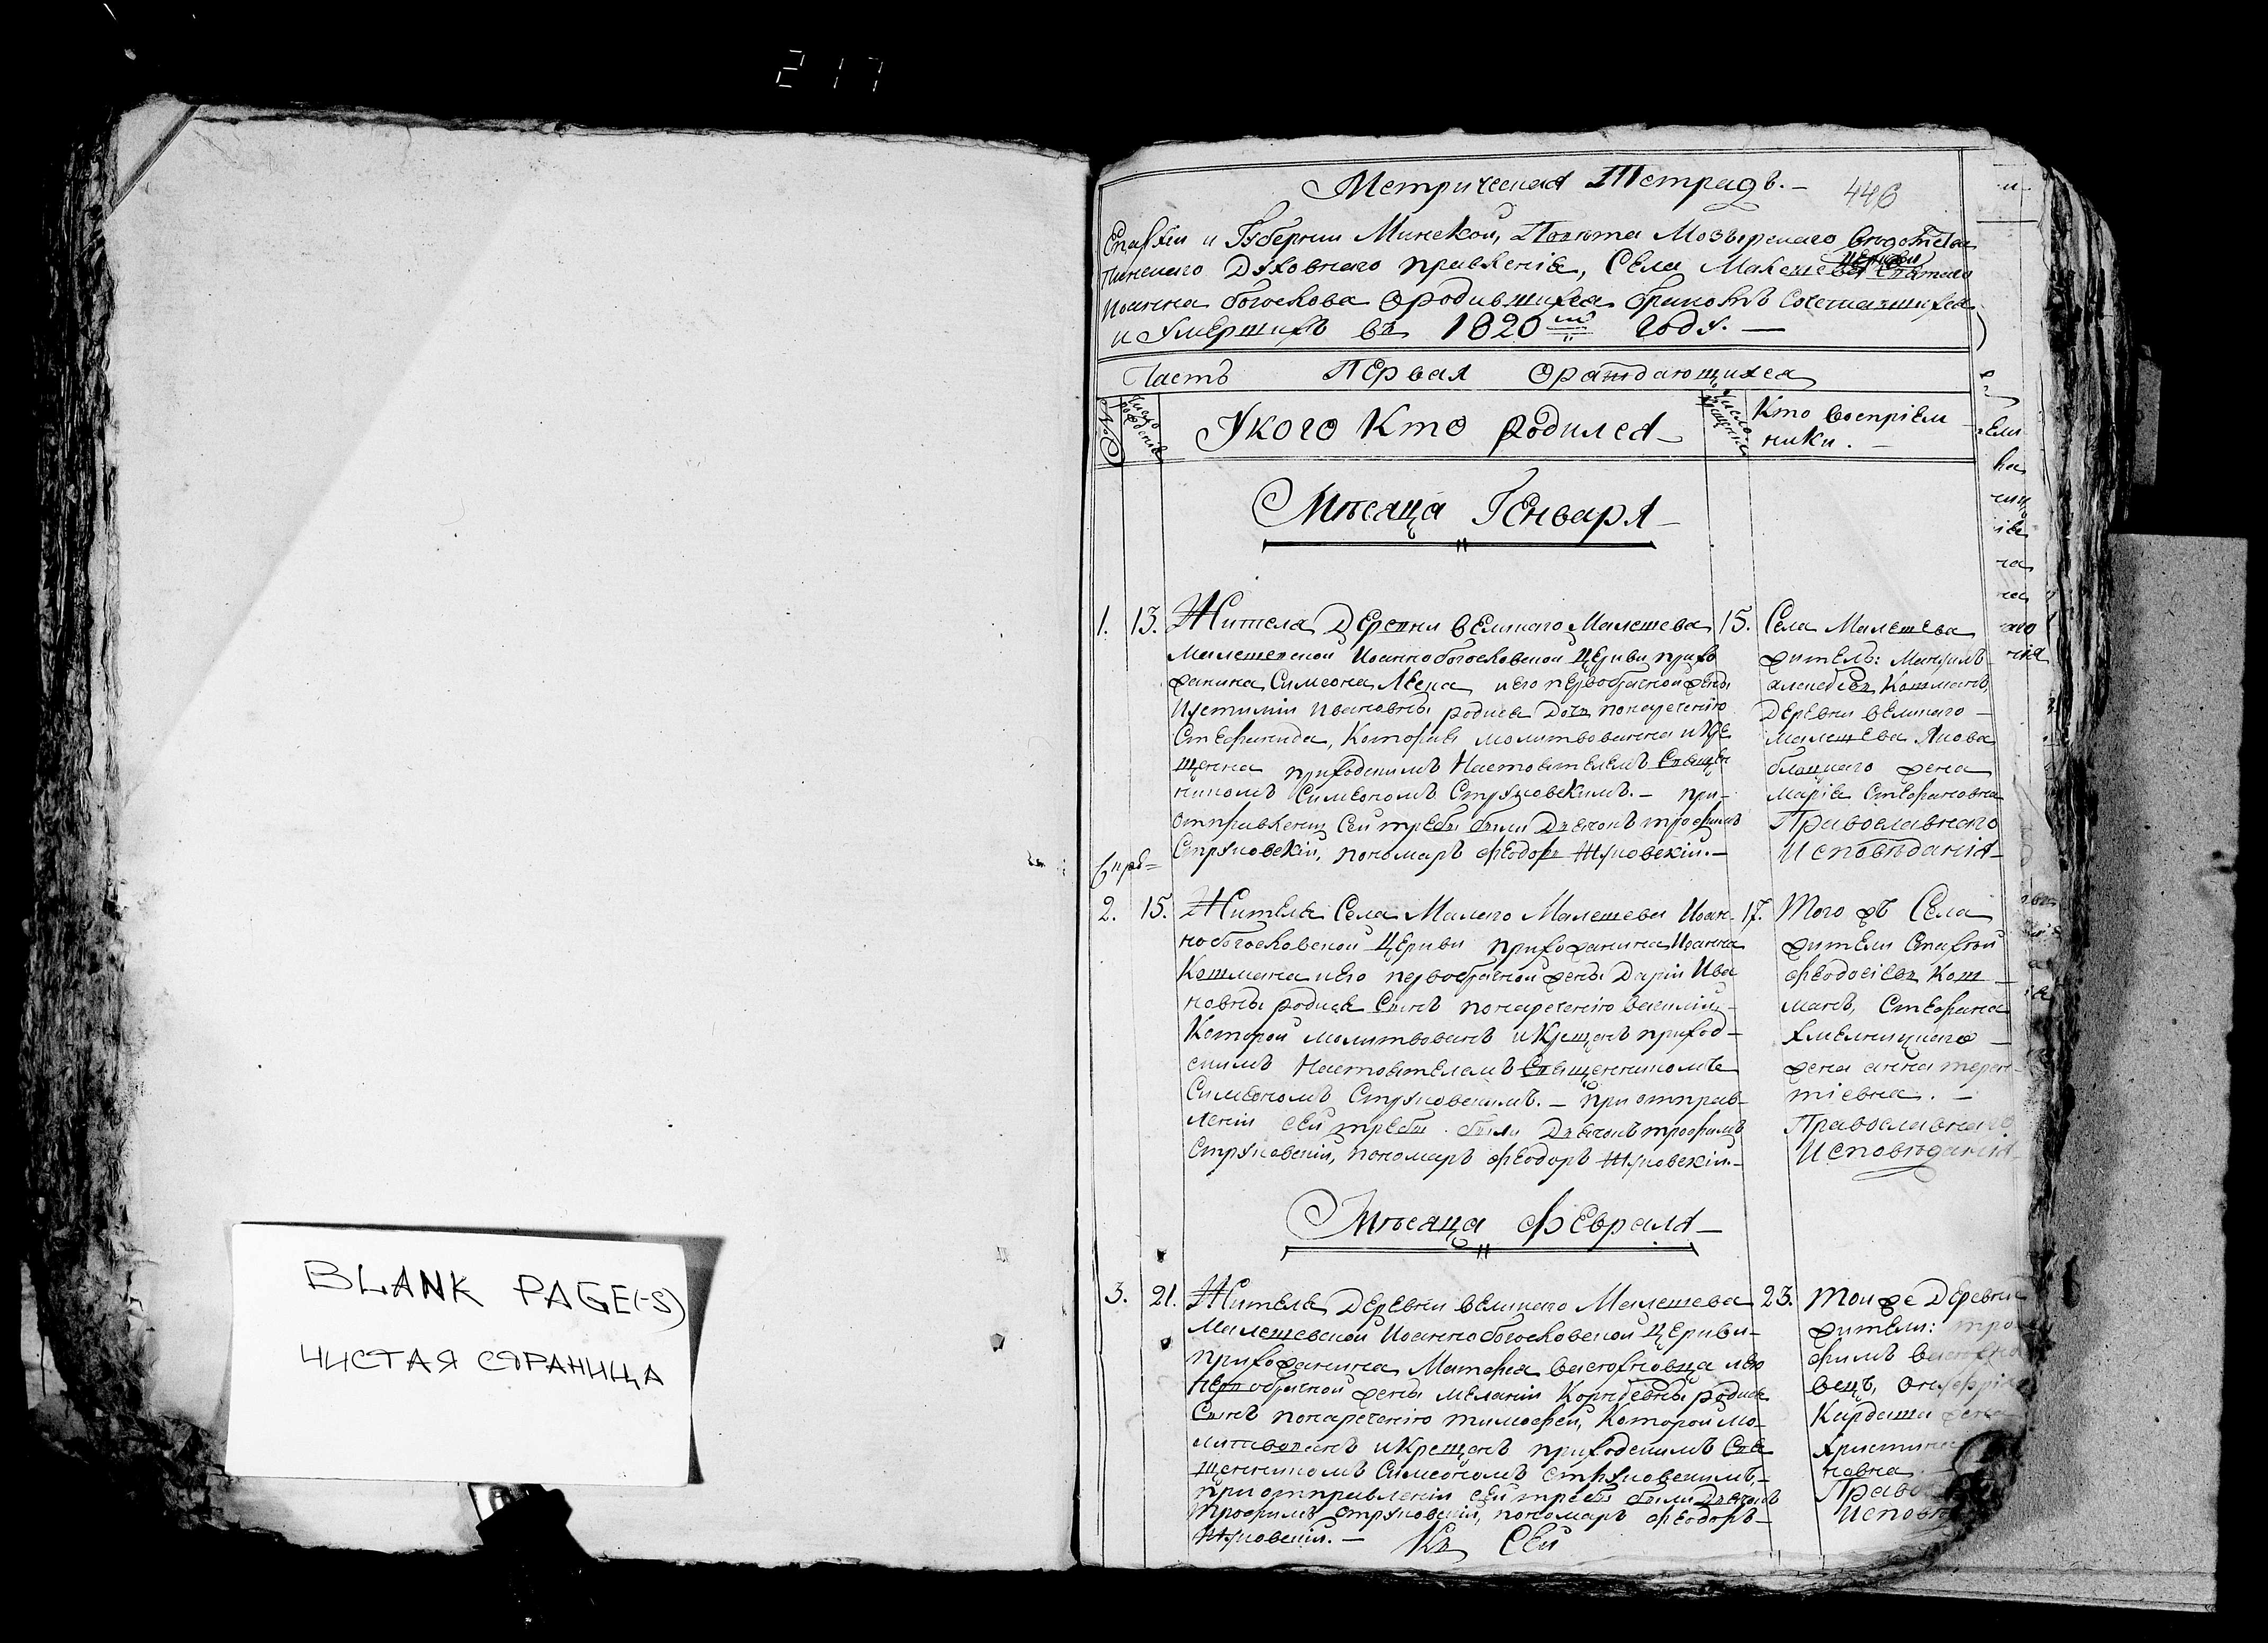 217
BLANK PAGE(-S)
ЧИСТАЯ СТРАНИЦА
Метрическая Тетрадь.—
446
Епархіи и Губерніи Минской, Повѣта Мозырскаго
Пинскаго Духовнаго правленія, Села церкви Святаго
Иоанна богослова ородившихся бракомъ сочетавшихся
и умершихъ въ 1820 году.—
Часть Первая Ораждающихся
№ Число рожденія
Укого Кто родился
Число крещенія
Кто восприем
ники.—
Мѣсяца Генваря
1. 13. Жителя Деревни великаго Малешева
Малешевской Иоаннобогословской Церкви прихо
жанина Симеона и его первобрачной жены
Иустинии Ивановны родися Дочь понаречению
Стефанида, Которая молитвованна и Кре
щенна приходскимъ Настоятелемъ Священ
никомъ Симеономъ Струковскимъ.— при
отправлении Сей требы были Дьячокъ трофимъ
Струковский, пономарь Феодоръ Жуковский.—
15. Села Малешева
житель:
Котманъ,
Деревни великаго
Малешева Якова
жена
Мария Стефановна
Православнаго
Исповѣдания
2. 15. Жителя Села Малаго Малешева Иоан-
нобогословской Церкви прихожанина Иоанна
Котмана и его первобрачной жены Дарии Ива
новны родися Сынъ понаречению василий
Которой молитвованъ и Крещенъ приход-
скимъ Настоятелемъ Священникомъ
Симеономъ Струковскимъ.— при отправ-
лении сей требы были Дьячокъ трофимъ
Струковский, пономарь Феодоръ Жуковский.—
17. Того жъ Села
жители
Феодосиевъ Кот
манъ, Стефана
Хмелницкаго
жена анна терен-
тиевна.—
Православнаго
Исповѣдания
Мѣсяца Февраля
3. 21. Жителя Деревни великаго Малешева
Малешевской Иоаннобогословской Церкви-
прихожанина Матфея и его
первобрачной жены Мелании родися
Сынъ понаречению тимофей, Которой мо-
литвованъ и Крещенъ приходскимъ Свя
щенникомъ Симеономъ Струковскимъ,-
при отправлении сей требы были Дьячокъ
Трофимъ Струковский, пономарь Феодоръ-
Жуковский.— Къ Сей
23. Той же Деревни
жители: тро
фимъ
вецъ,
Кардаша жена
новна
Право
Исповѣ